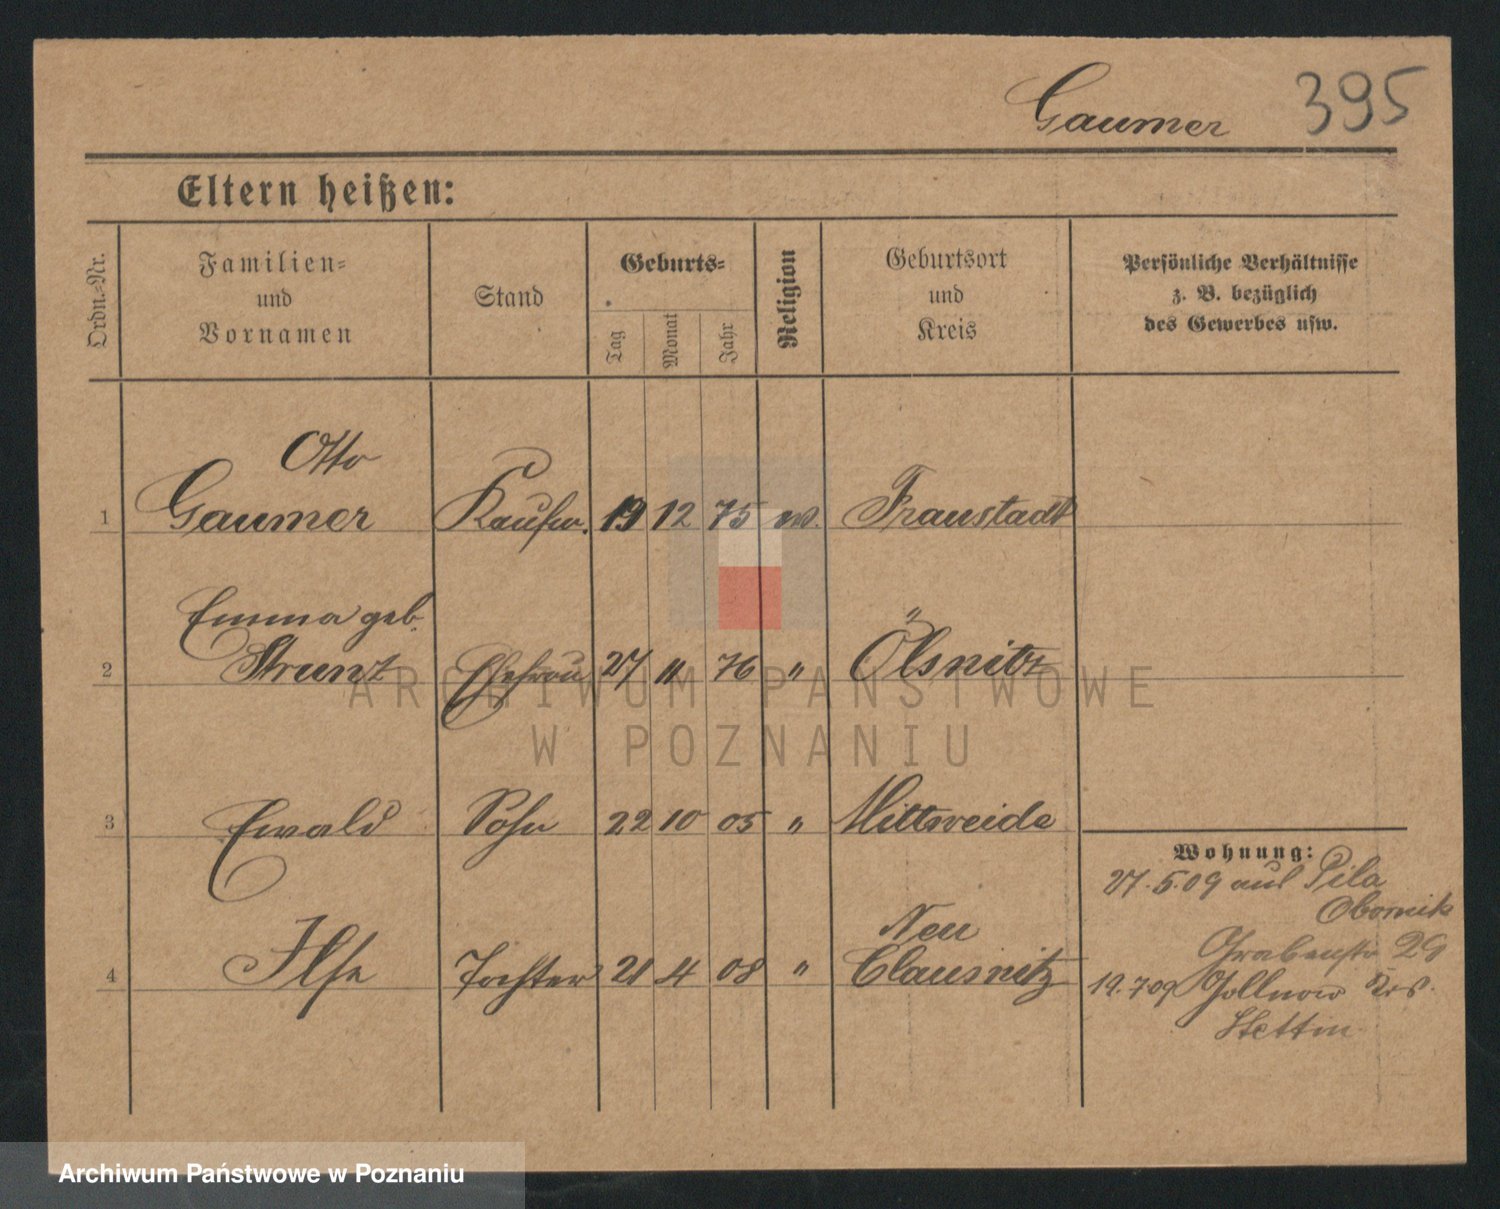 Gaumer 395
Eltern heißen:
Ordn.-Nr.
Familien-
und
Vornamen
Stand
Geburts-
Tag
Monat
Jahr
Religion
Geburtsort
und
Kreis
Persönliche Verhältnisse
z. B. bezüglich
des Gewerbes usw.
Otto
1 Gaumer Kaufm. 19 12 75 ev. Fraustadt
Emma geb.
2 Strunz Ehefrau 27 11 76 " Ölsnitz
3 Ewald Sohn 22 10 05 " Mittweida
Wohnung:
27.5.09 aus Pila
Obornik
Neu
Grabenstr 29
4 Ilse Tochter 21 4 08 " Clausnitz
19.7.09 Gollnow Krs.
Stettin
ARCHIWUM PAŃSTWOWE
W POZNANIU
Archiwum Państwowe w Poznaniu